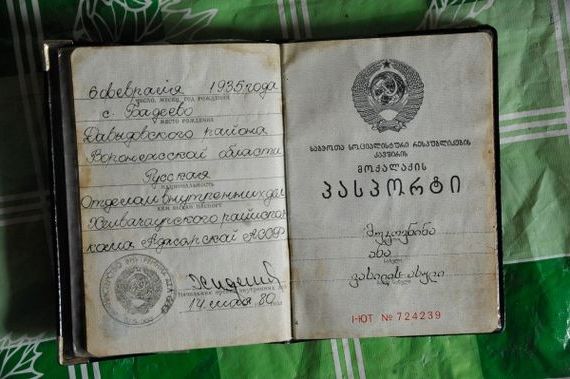 6 февраля 1935 года
число, месяц, год рождения
с. Бадеево
место рождения
Давыдовского района
Воронежской области
Русская
национальность
Отделом внутренних дел
кем выдан паспорт
Хелвачаурского райиспол
кома Аджарской АССР
14 мая 80
საბჭოთა სოციალისტური რესპუბლიკების
კავშირის
მოქალაქის
პასპორტი
ანა
I-ЮТ № 724239